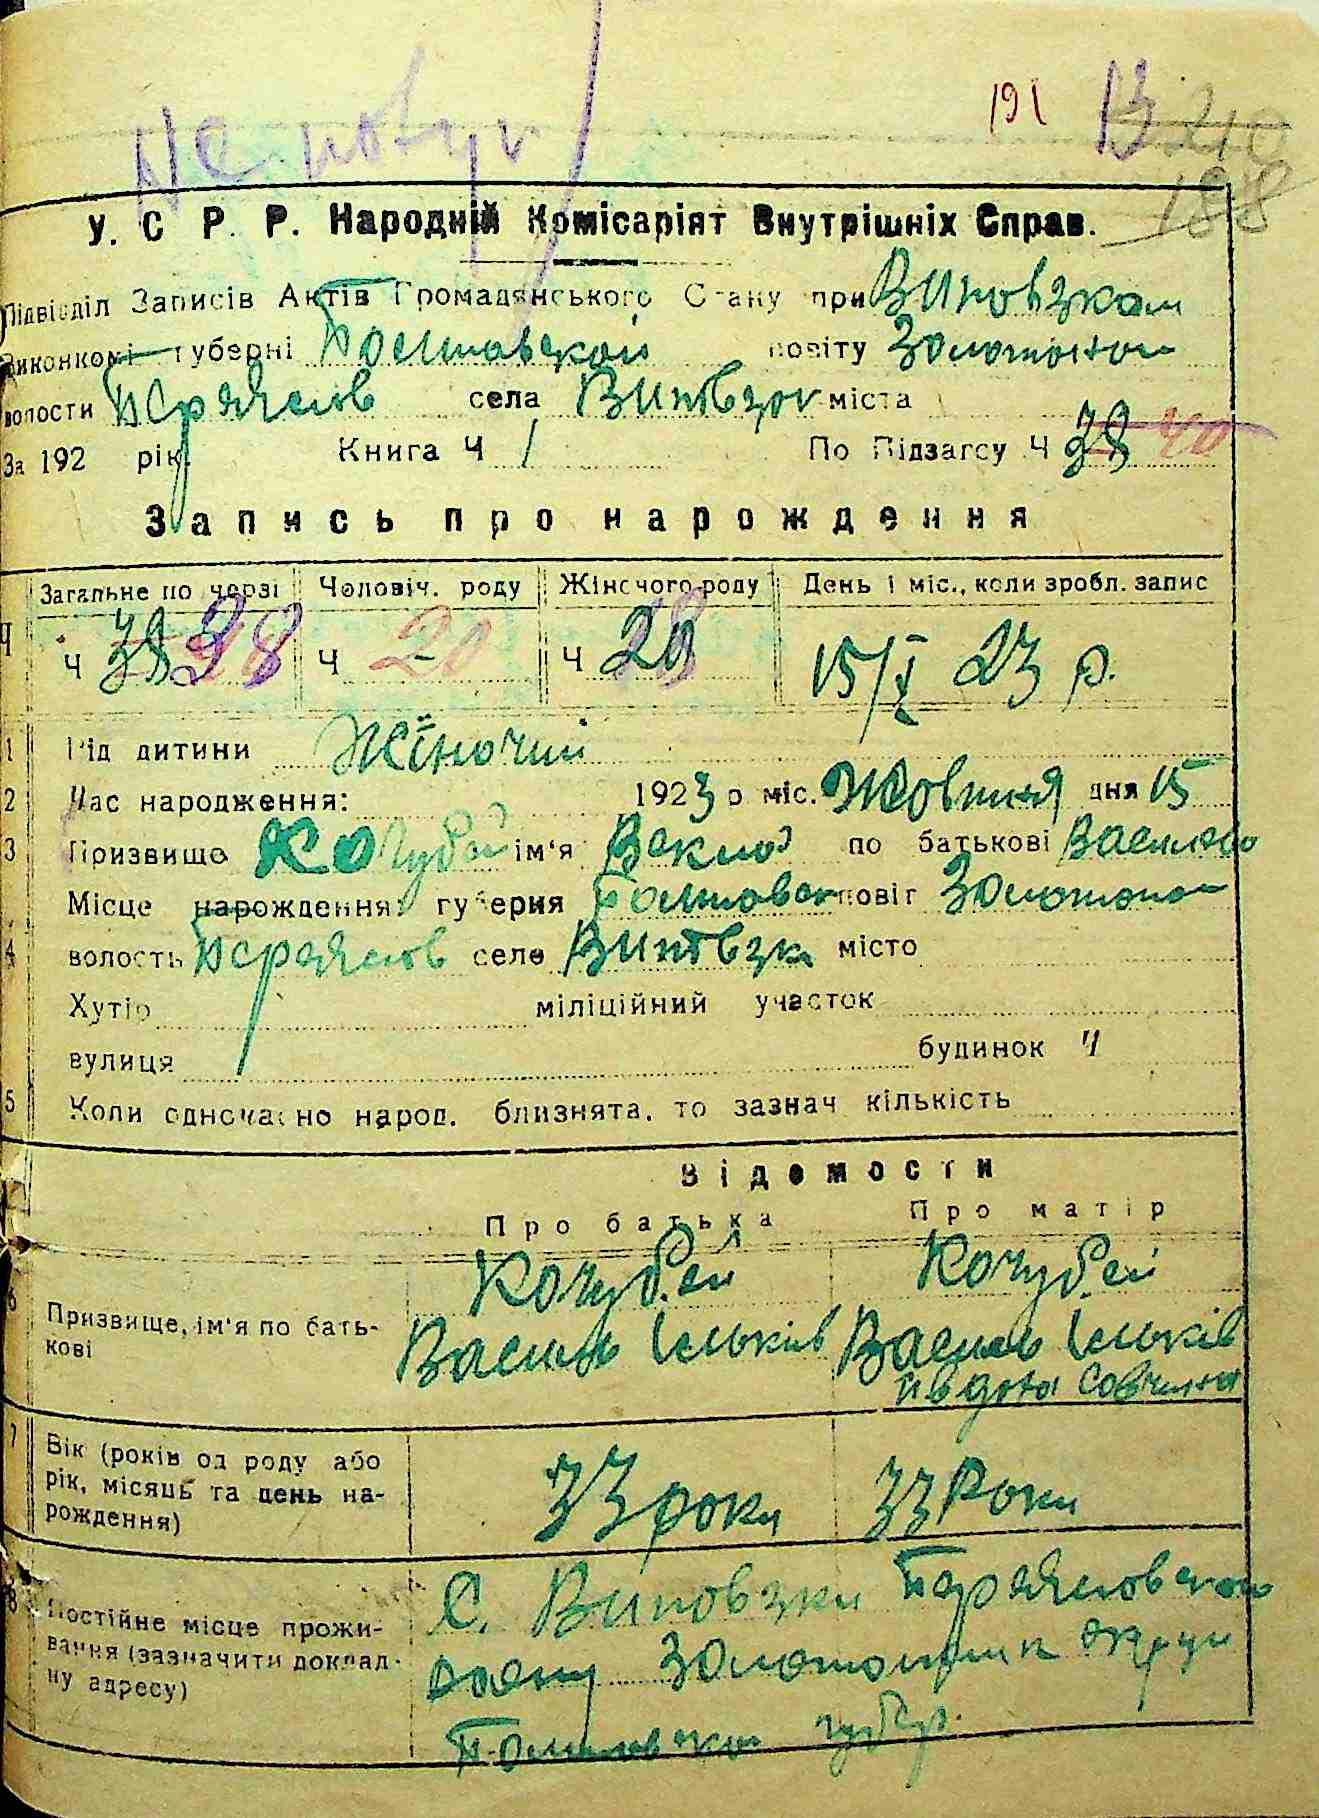 191 13 210
188
У. С. Р. Р. Народній Комісаріят Внутрішніх Справ.
Підвідділ Записів Актів Громадянського Стану при Виповзком
Виконкомі губерні Полтавской повіту Золотоном
волости Переяслов села Виповзок міста
За 192 рік. Книга Ч 1 По Підзагсу Ч 38 40
Запись про нарождення
Загальне по черзі Чоловіч. роду Жіночого роду День і міс., коли зробл. запис
Ч Ч 38 38 Ч 20 Ч 20 15/X 23 р.
1 Рід дитини Жіночий
2 Час народження: 1923 р міс. Жовтня дня 15
3 Призвище Кочубей ім'я Векла по батькові Васильев
Місце нарождення: губерня Полтовск повіт Золотоно
4 волость Переяслов село Виповзк місто
Хутір міліційний участок
вулиця будинок Ч
5 Коли одночасно народ. близнята, то зазнач кількість
Відомости
Про батька Про матір
6 Призвище, ім'я по бать-
кові
Кочубей Кочубей
Василь Ільків Василь Ільків
Явдоха Совчина
7 Вік (років од роду або
рік, місяць та день на-
рождення)
33 роки 33 Роки
8 Постійне місце прожи-
вання (зазначити доклад-
ну адресу)
С. Виповзки Переяслов
Золотонош округи
Полтовско губер.